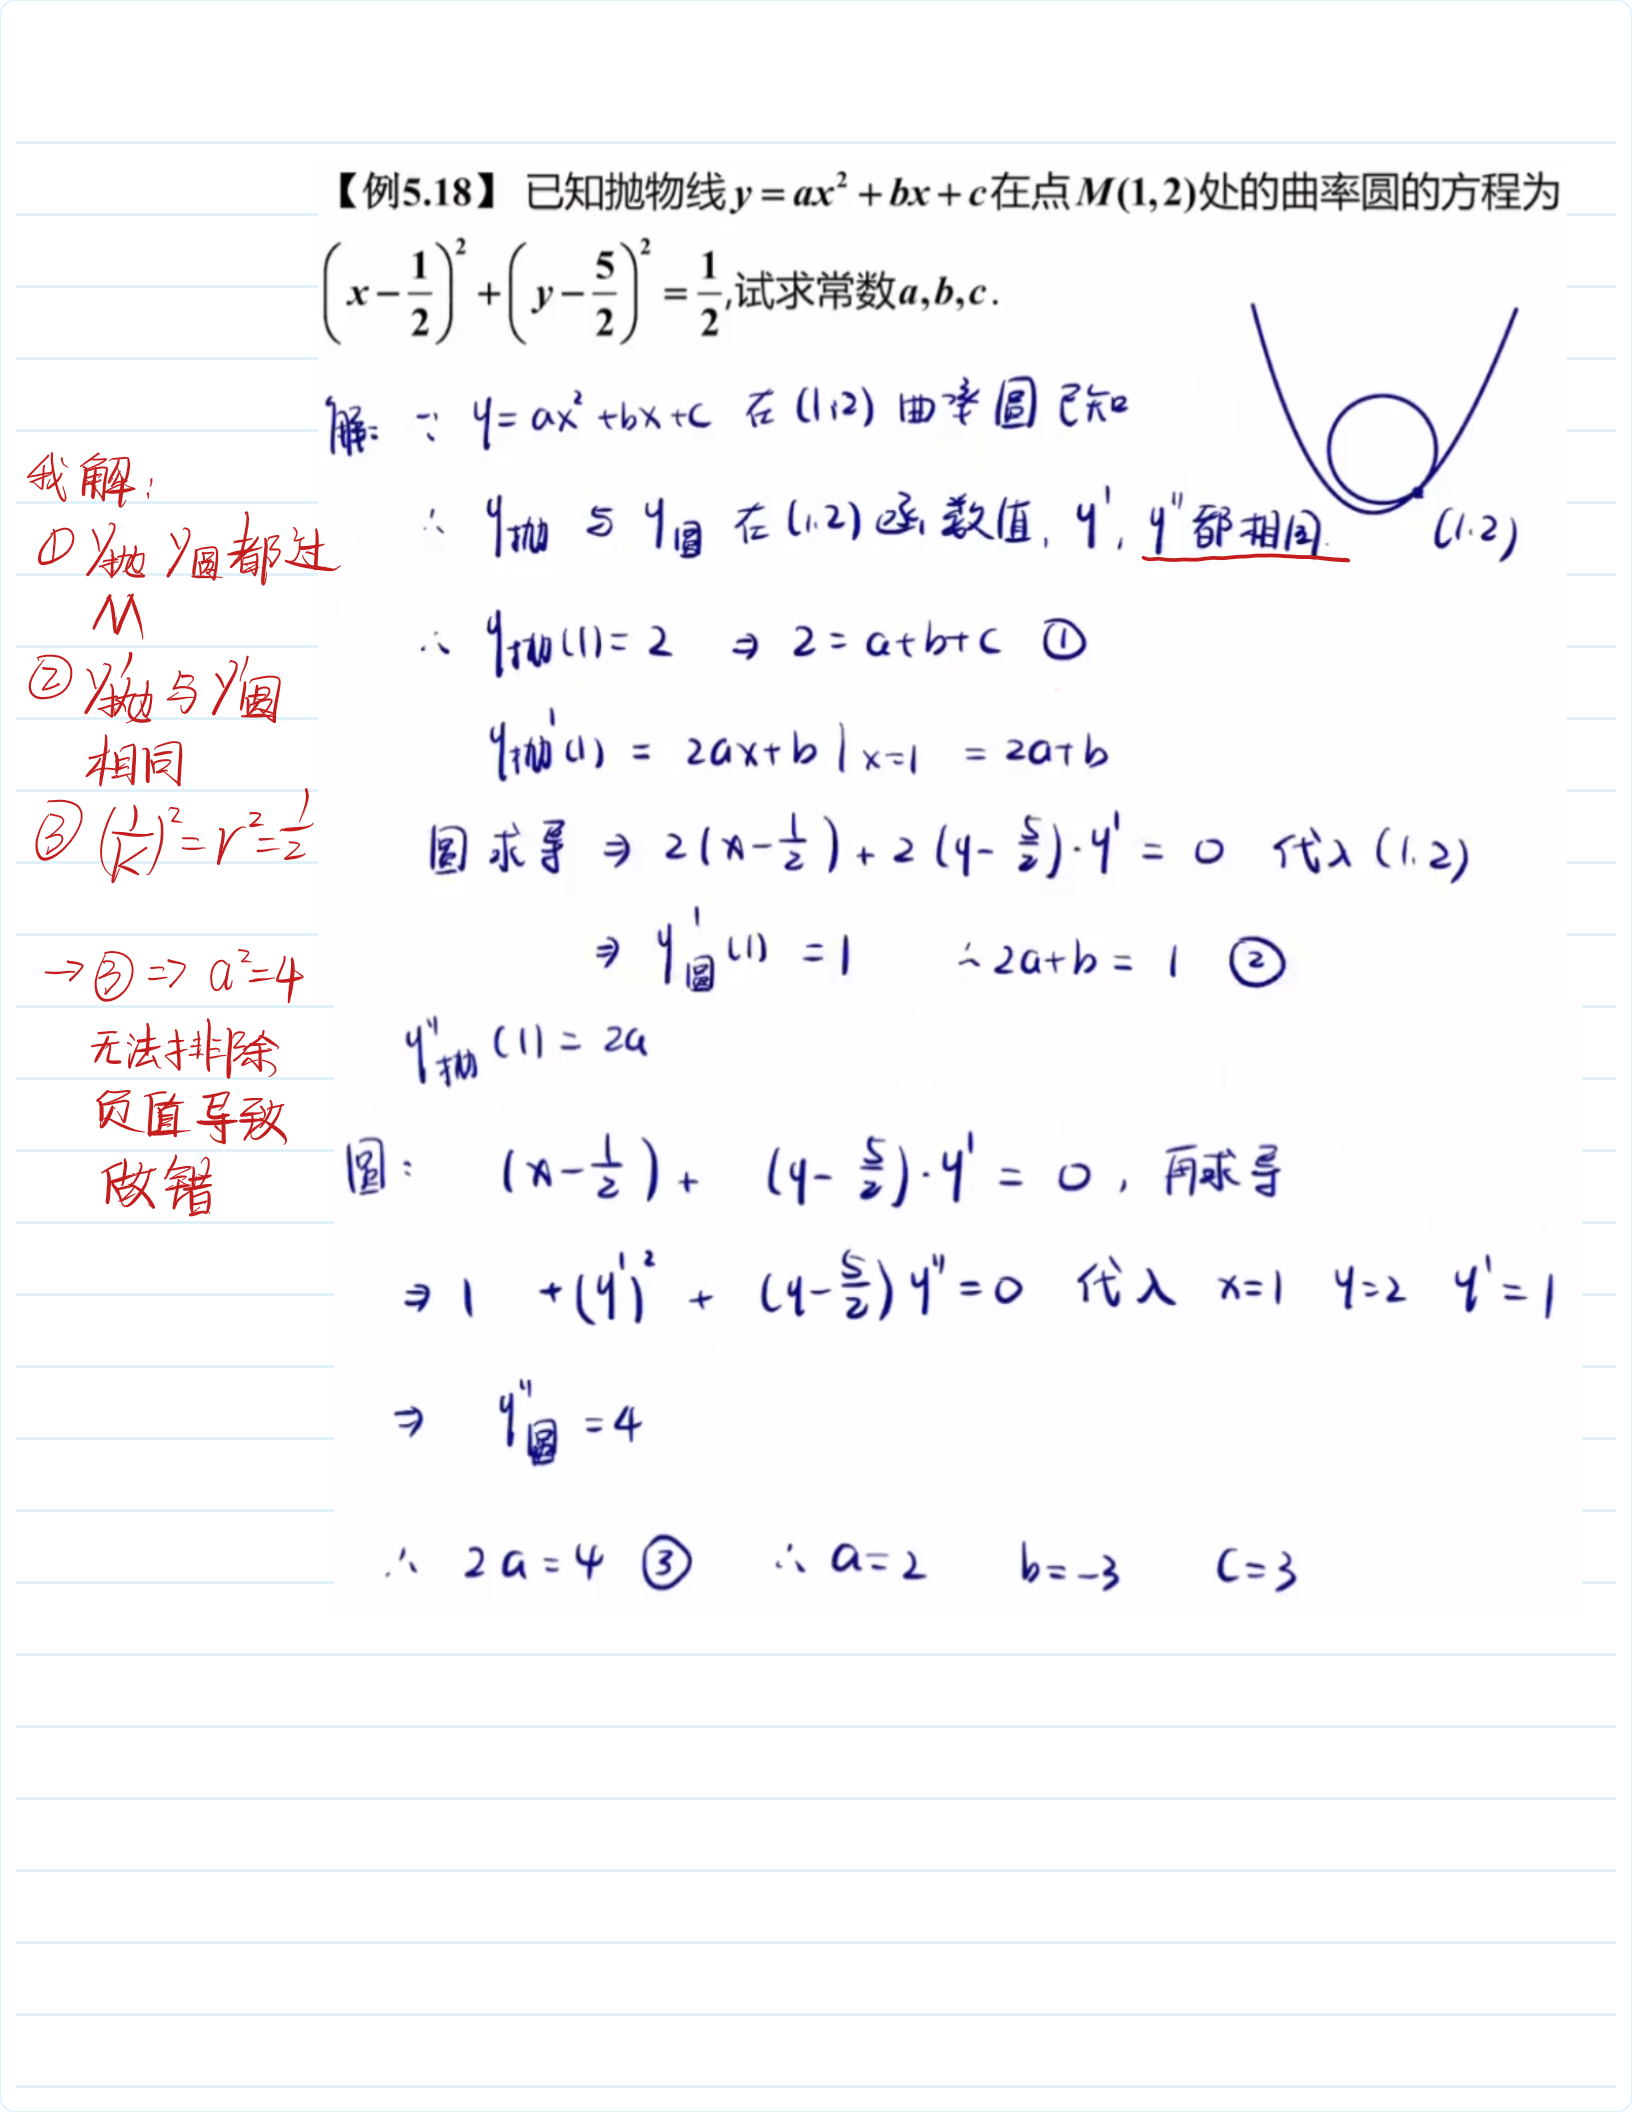 【例5.18】 已知抛物线 y = ax² + bx + c 在点 M(1,2) 处的曲率圆的方程为
(x − 1/2)² + (y − 5/2)² = 1/2, 试求常数 a, b, c.
解: ∵ y = ax² + bx + c 在 (1,2) 曲率圆已知
∴ y抛 与 y圆 在 (1,2) 函数值, y', y'' 都相同.
(1,2)
∴ y抛(1) = 2 ⇒ 2 = a+b+c ①
y抛'(1) = 2ax+b |x=1 = 2a+b
圆求导 ⇒ 2(x − 1/2) + 2(y − 5/2)·y' = 0 代入 (1,2)
⇒ y'圆(1) = 1 ∴ 2a+b = 1 ②
y''抛(1) = 2a
圆: (x − 1/2) + (y − 5/2)·y' = 0, 再求导
⇒ 1 + (y')² + (y − 5/2)y'' = 0 代入 x=1 y=2 y'=1
⇒ y''圆 = 4
∴ 2a = 4 ③ ∴ a=2 b=−3 c=3
我解:
① y抛 y圆都过
M
② y'抛 与 y'圆
相同
③ (1/K)² = r² = 1/2
→ ③ => a²=4
无法排除
负值导致
做错